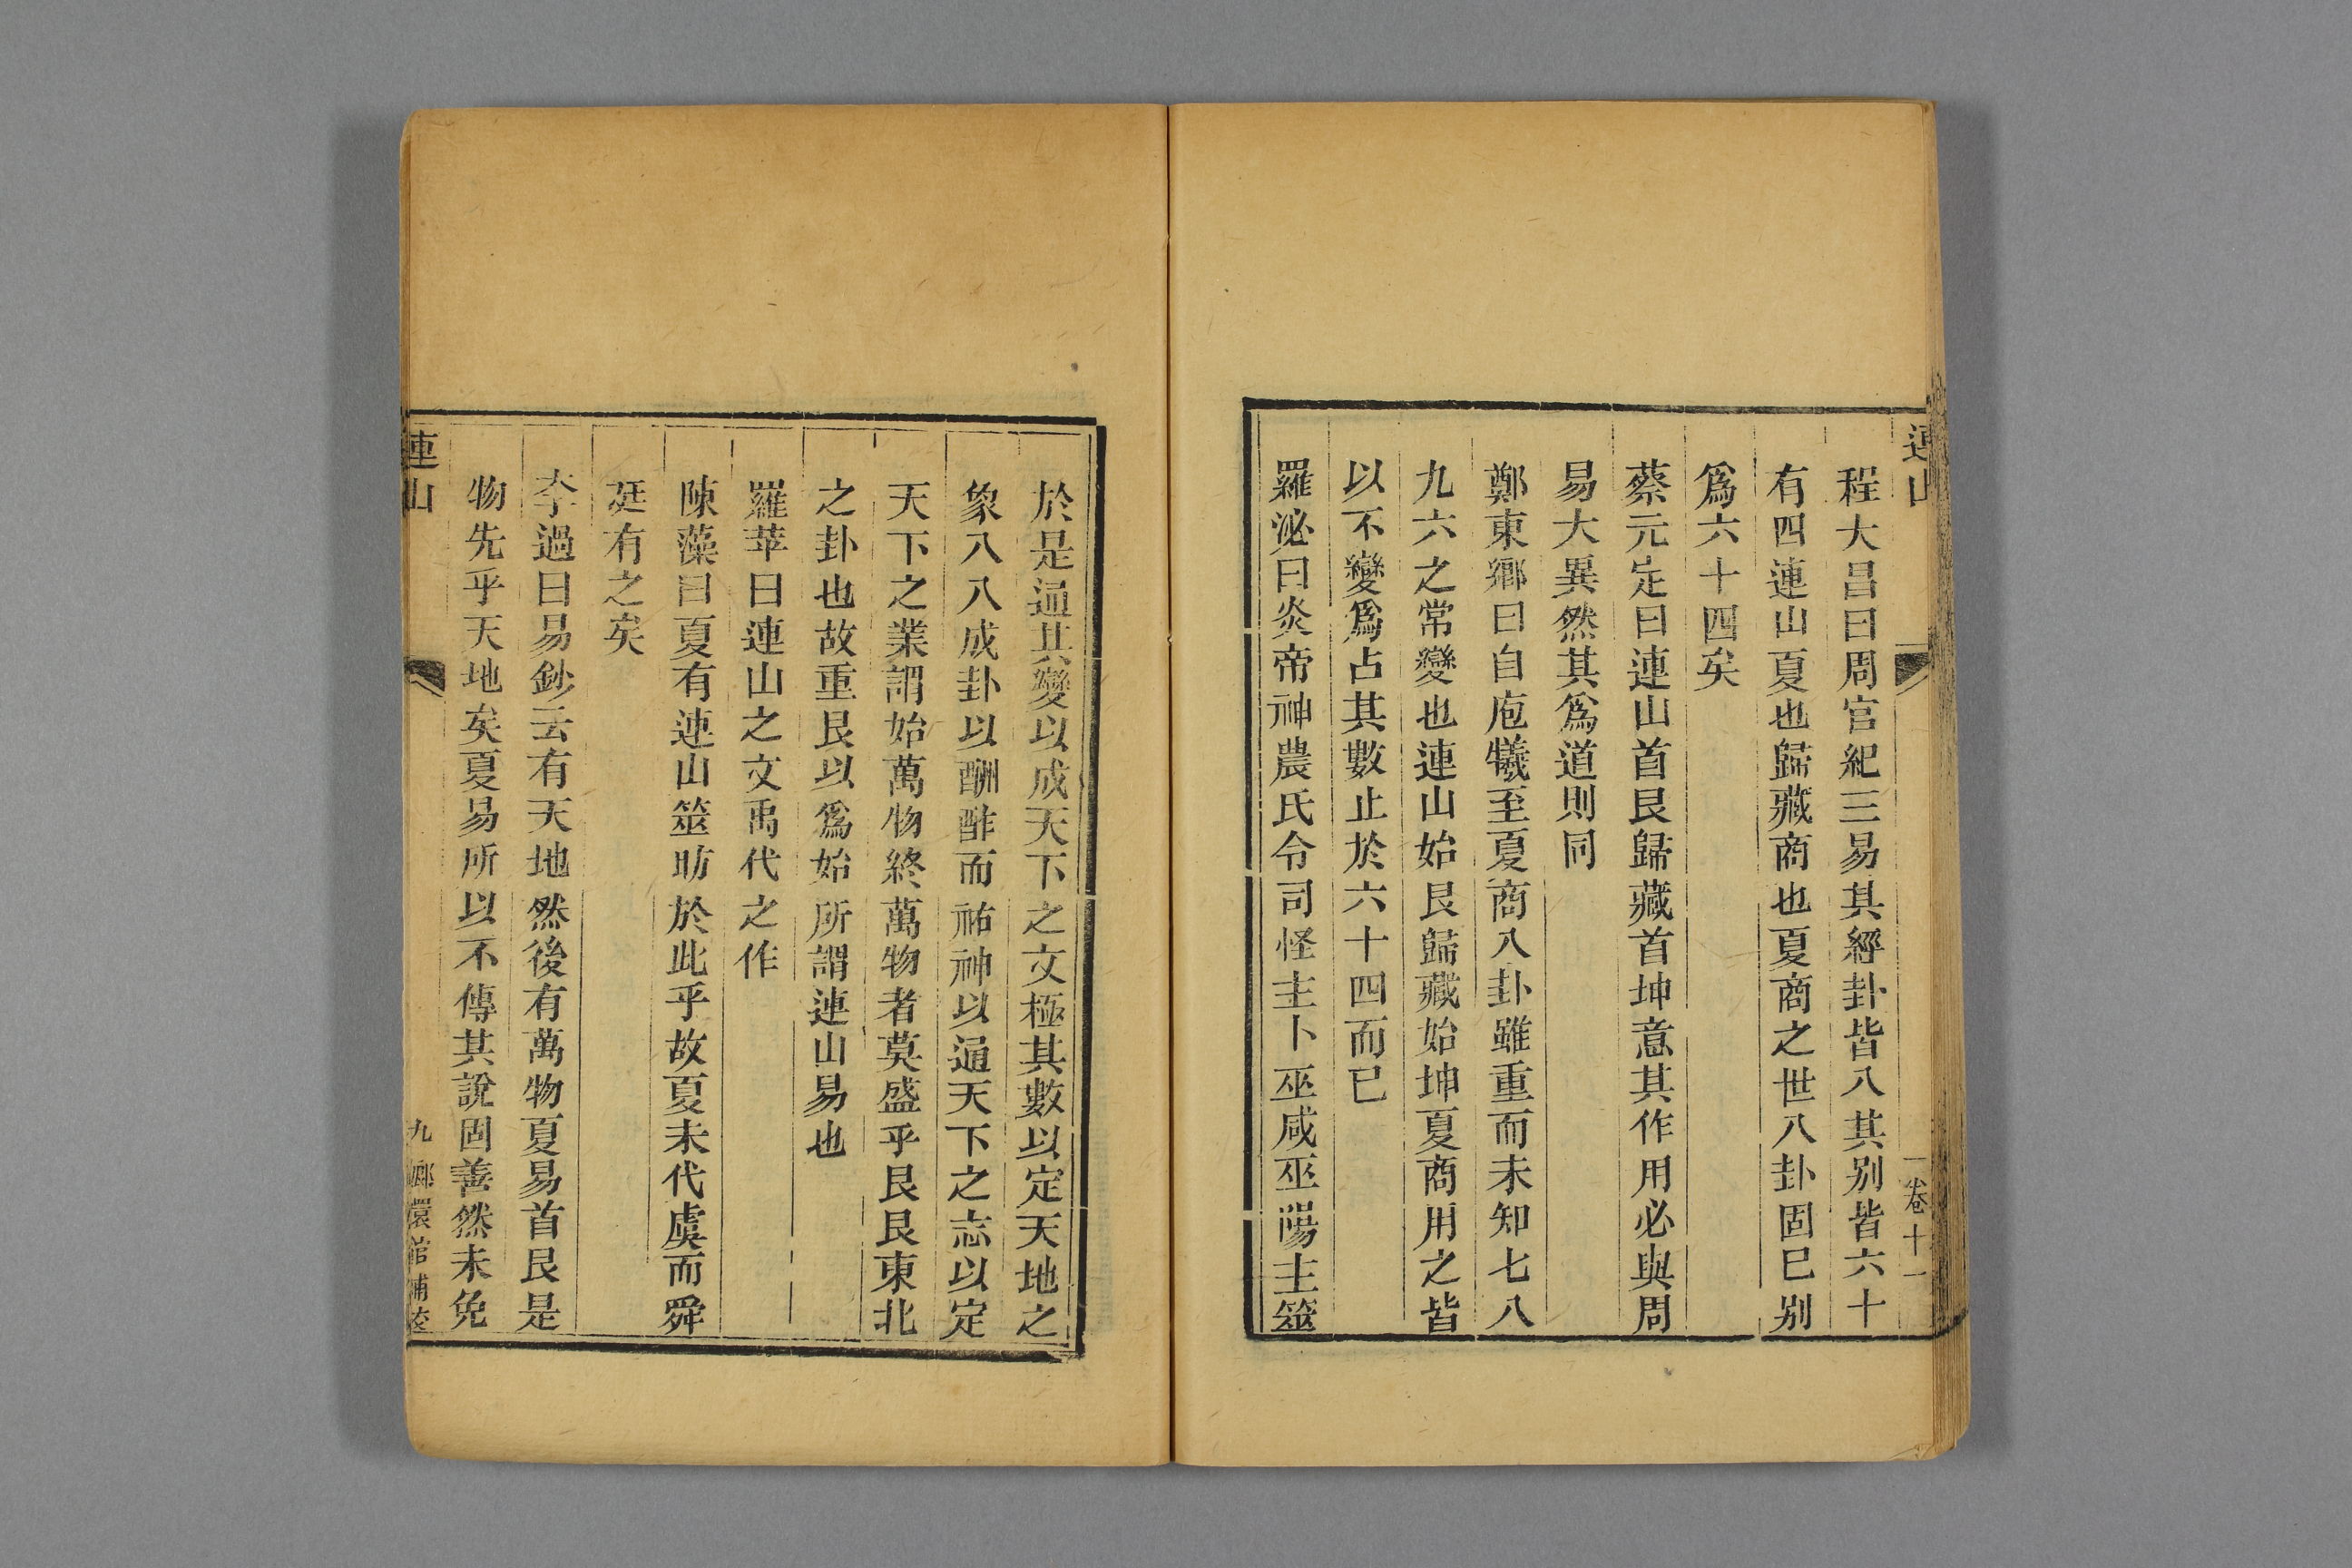 連山
卷十一
程大昌曰周官紀三易其經卦皆八其别皆六十
有四連山夏也歸藏商也夏商之世八卦固已别
爲六十四矣
蔡元定曰連山首艮歸藏首坤意其作用必與周
易大異然其爲道則同
鄭東鄉曰自庖犧至夏商八卦雖重而未知七八
九六之常變也連山始艮歸藏始坤夏商用之皆
以不變爲占其數止於六十四而已
羅泌曰炎帝神農氏令司怪主卜巫咸巫陽主筮
於是通其變以成天下之文極其數以定天地之
象八八成卦以酬酢而祐神以通天下之志以定
天下之業謂始萬物終萬物者莫盛乎艮艮東北
之卦也故重艮以爲始所謂連山易也
羅苹曰連山之文禹代之作
陳藻曰夏有連山筮昉於此乎故夏未代虞而舜
廷有之矣
李過曰易鈔云有天地然後有萬物夏易首艮是
物先乎天地矣夏易所以不傳其說固善然未免
連山
九
嫏嬛館補校